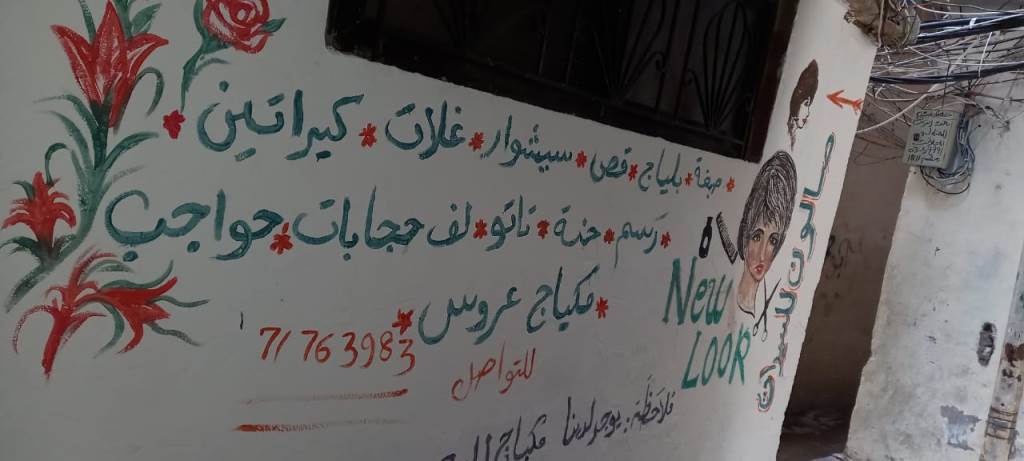 * صبغة * بلياج * قص * سيشوار * غلات * كيراتين *
* رسم * حنة * تاتو * لف حجابات * حواجب
* مكياج عروس *
للتواصل 71 763983
ملاحظة: يوجد لدينا مكياج
New
LOOK
صالون للسيدات